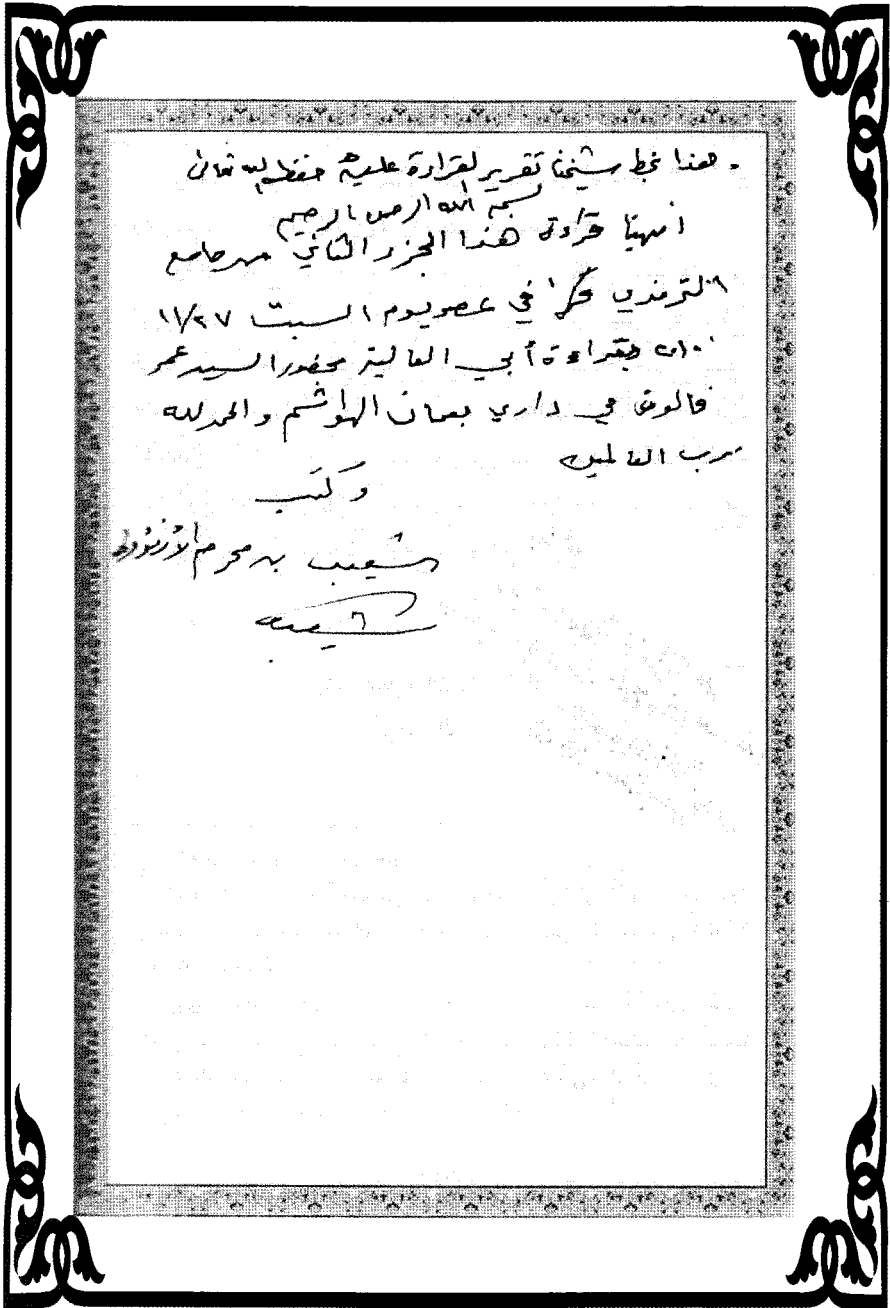 . هذا بخط شيخنا تقرير لقراءة عليه حفظه الله تعالى
بسم الله الرحمن الرحيم
أنهينا قراءة هذا الجزء الثاني من جامع
الترمذي في عصر يوم السبت ١١/٢٧
بقراءة أبي العالية بحضور السيد عمر
في داري بعمان الهواشم والحمد لله
رب العالمين
وكتب
شعيب بن محرم الأرنؤوط
شعيب